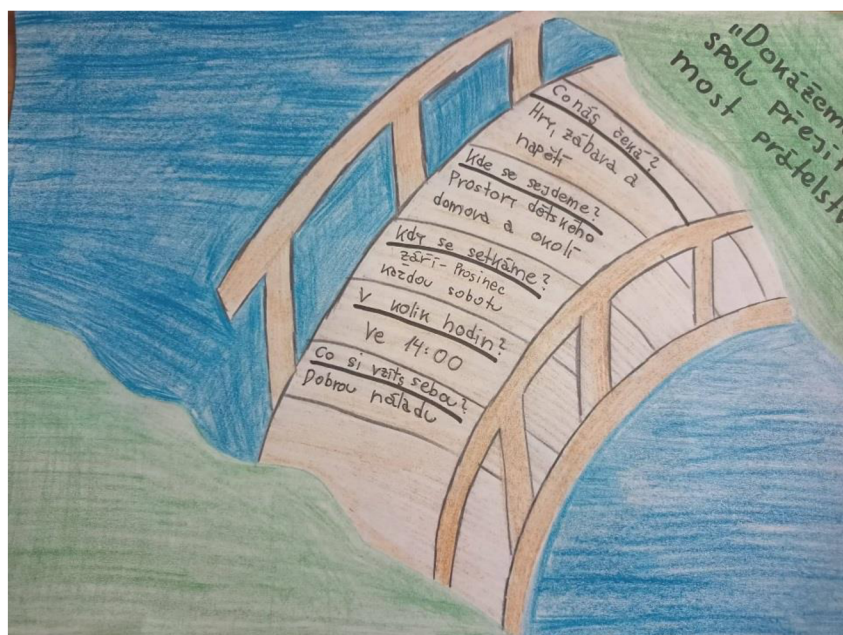 "Dokážem
spolu přejít
most přátelstv
Co nás čeká?
Hry, zábava a
napětí
Kde se sejdeme?
Prostory dětského
domova a okolí
Kdy se setkáme?
září - Prosinec
každou sobotu
V kolik hodin?
Ve 14:00
Co si vzít s sebou?
Dobrou náladu